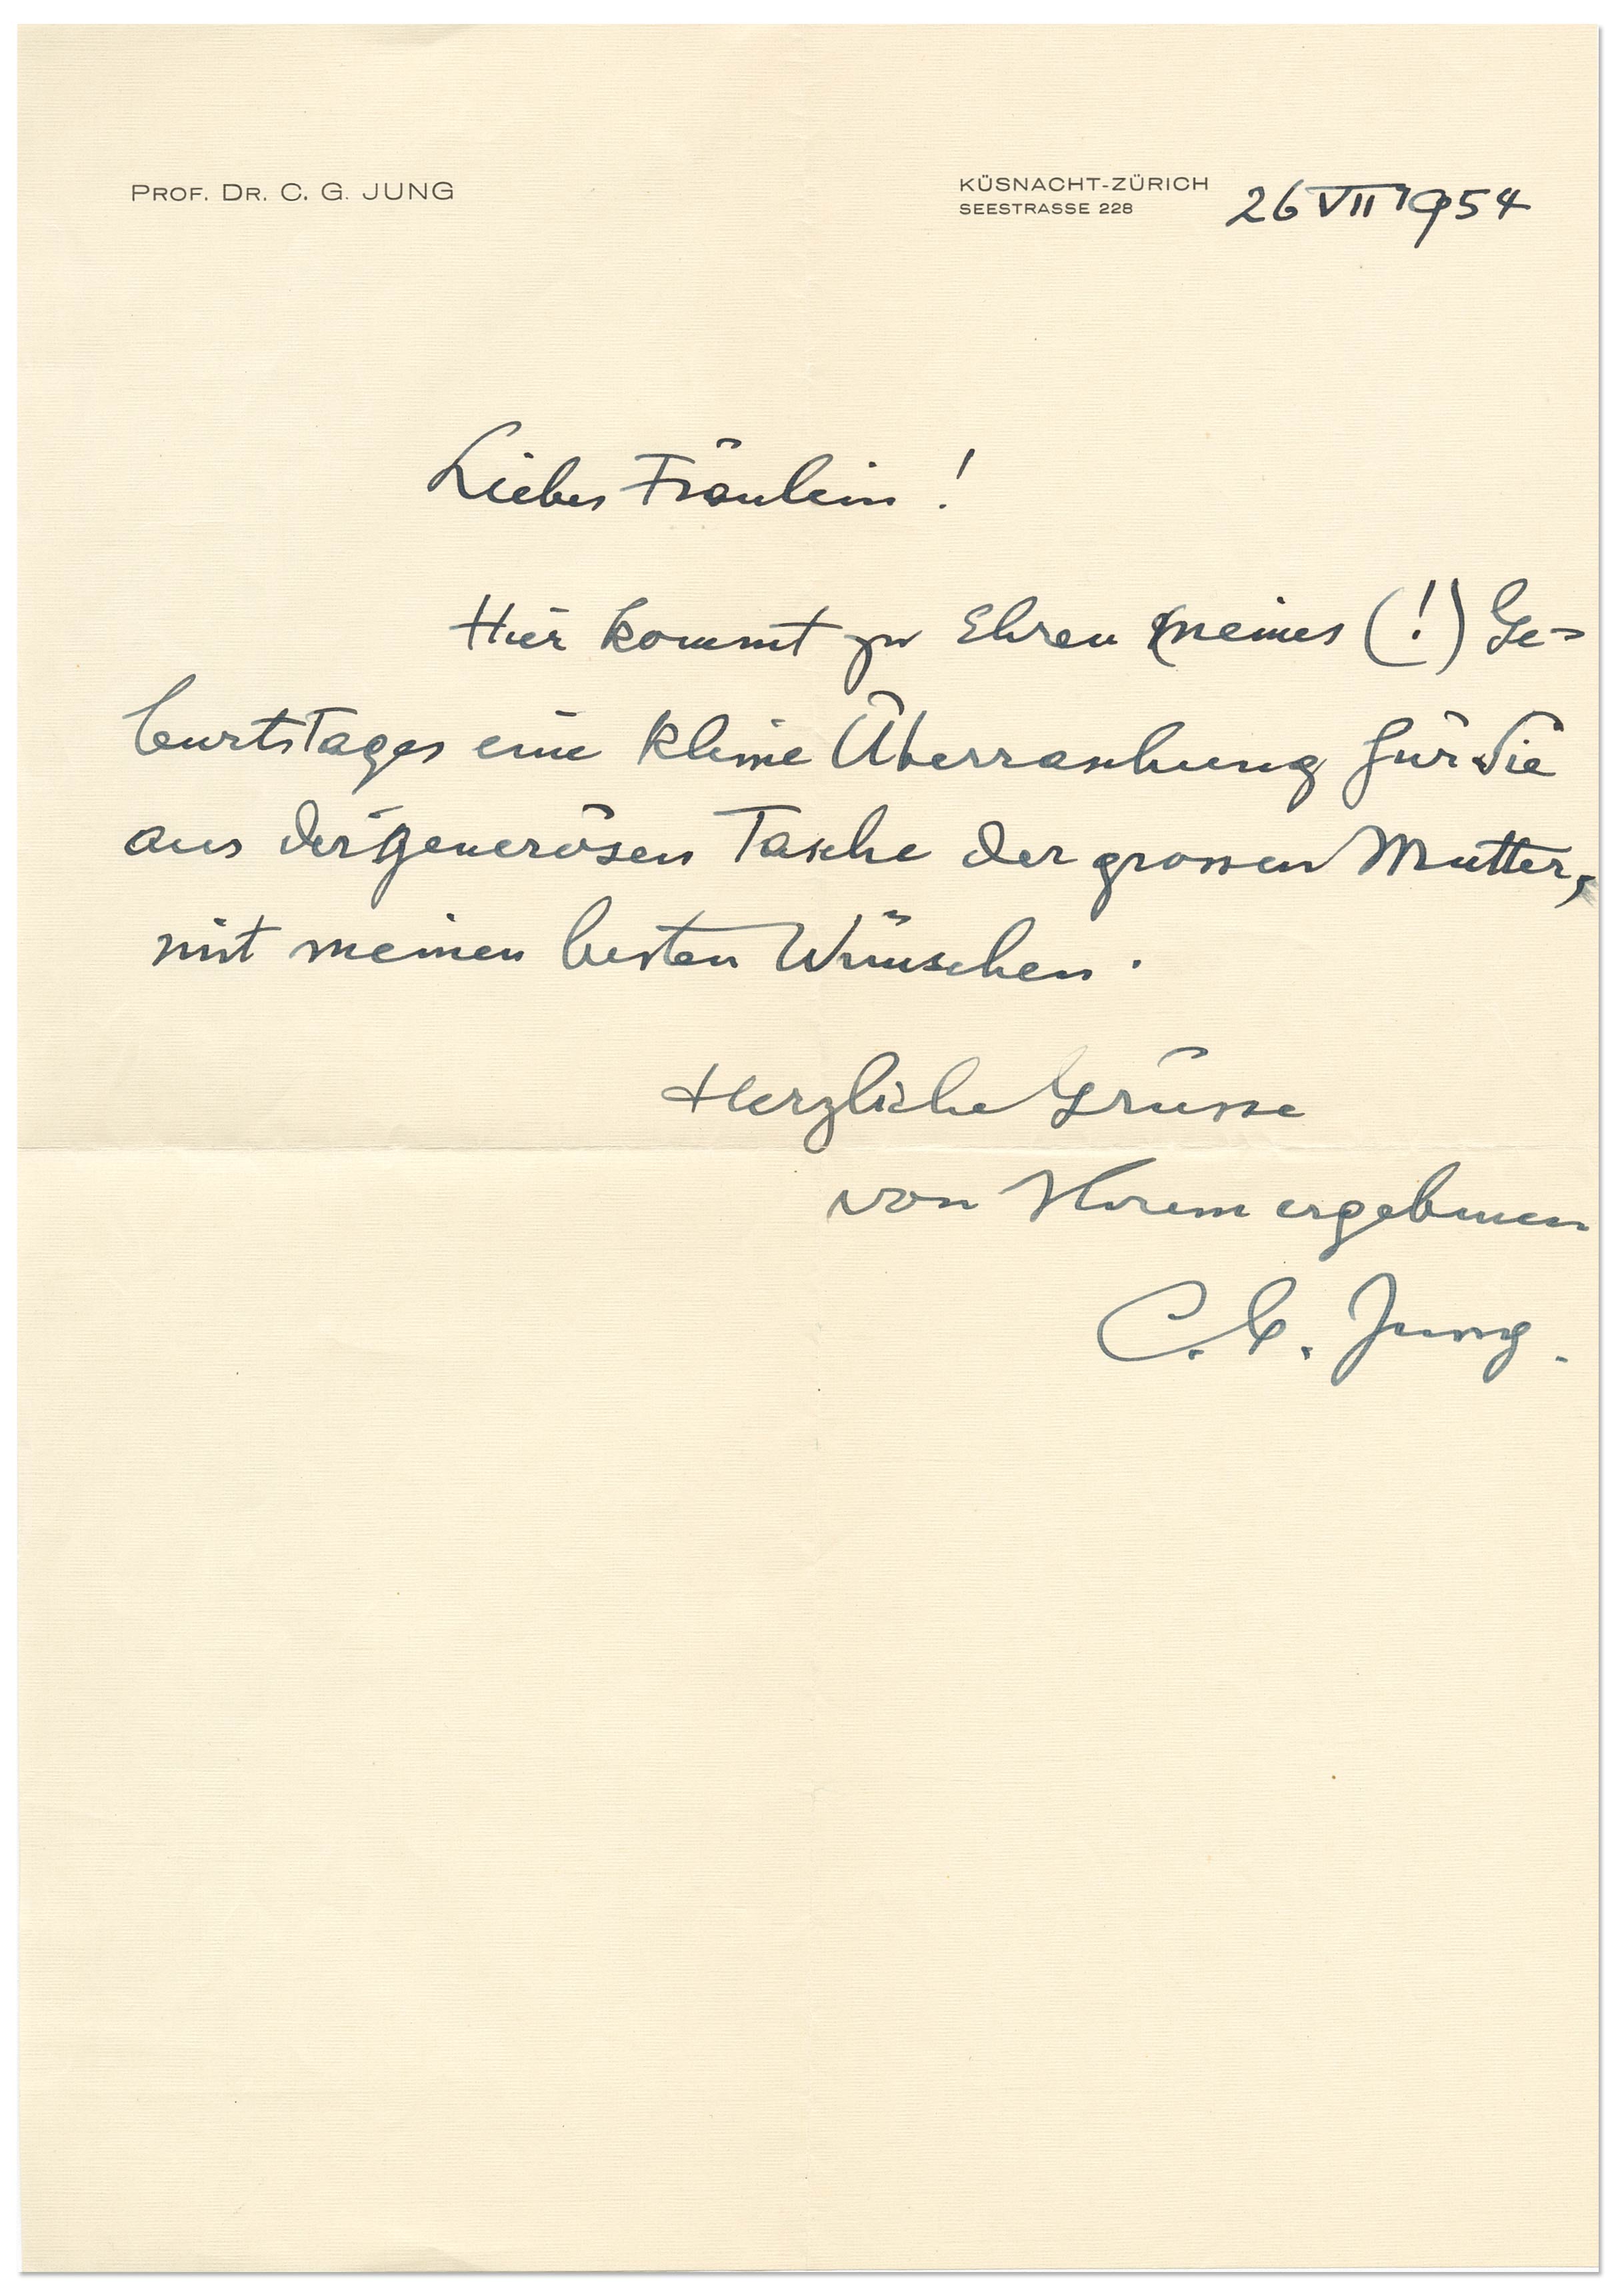 PROF. DR. C. G. JUNG
KÜSNACHT-ZÜRICH
SEESTRASSE 228
26 VII 1954
Liebes Fräulein !
Hier kommt zu Ehren meines (!) Ge=
burtstages eine kleine Überraschung für Sie
aus der generösen Tasche der grossen Mutter,
mit meinen besten Wünschen.
Herzliche Grüsse
von Ihrem ergebenen
C. G. Jung.